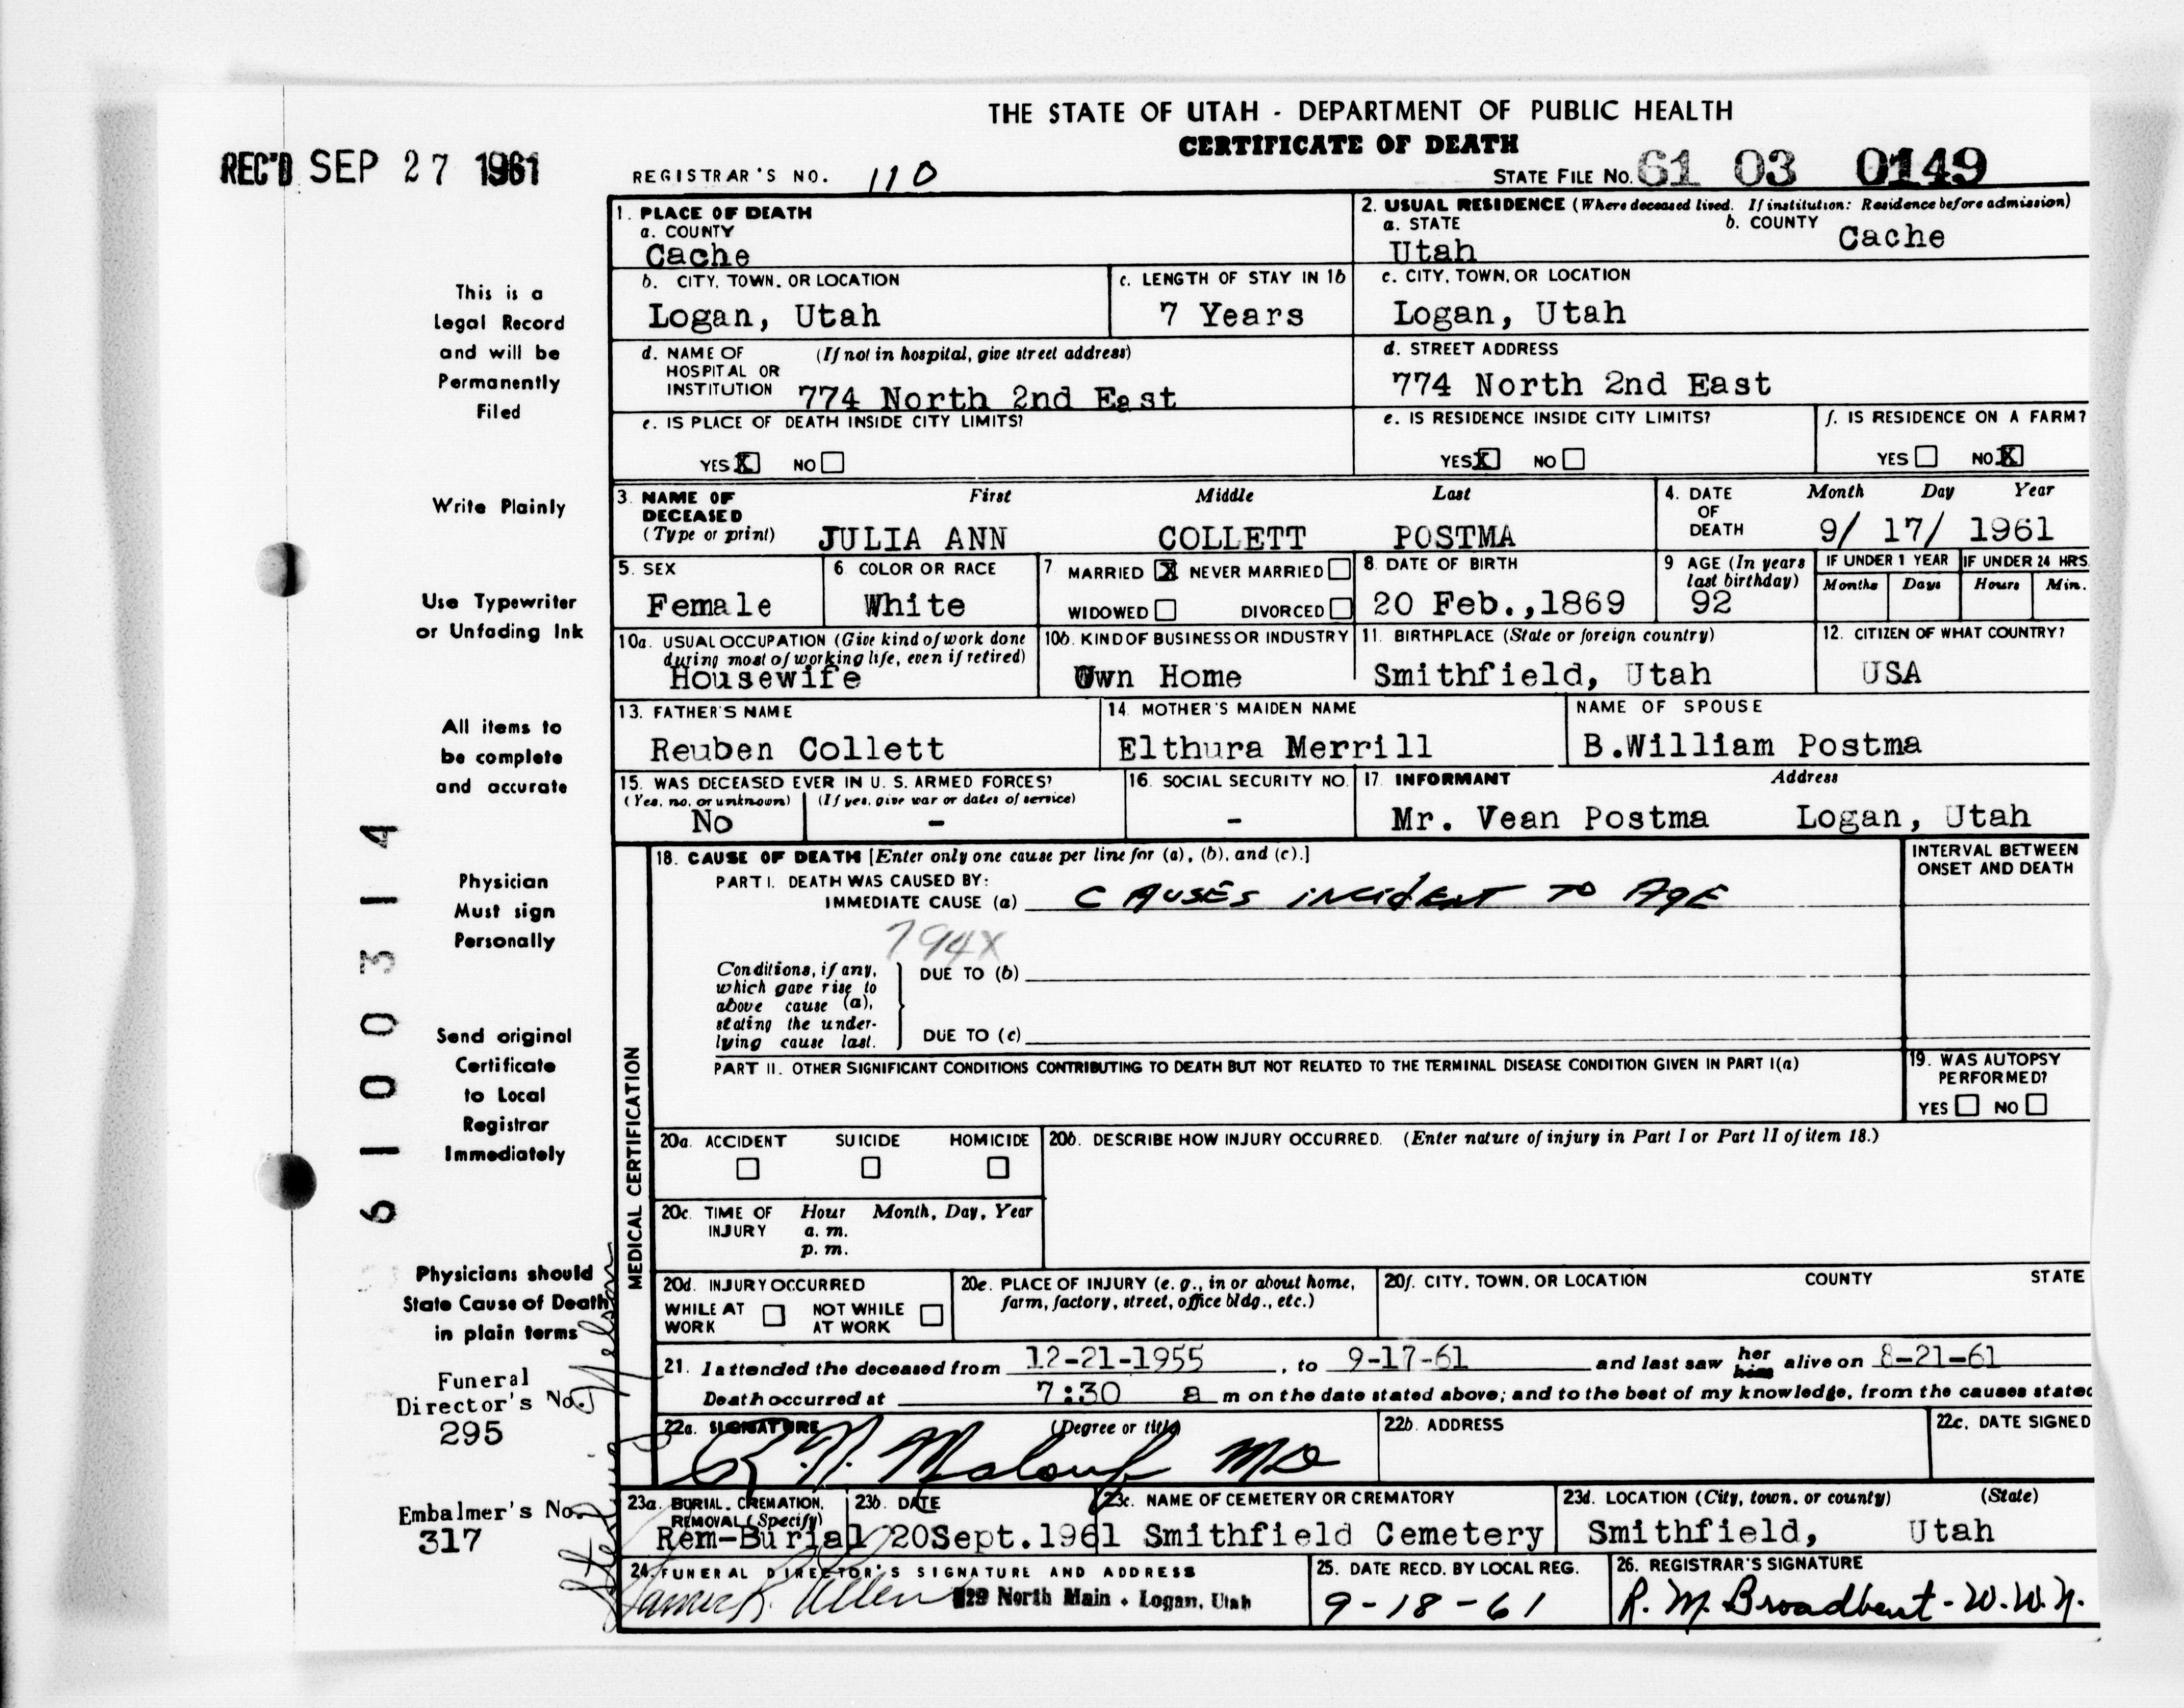 THE STATE OF UTAH - DEPARTMENT OF PUBLIC HEALTH
CERTIFICATE OF DEATH
REC'D SEP 27 1961
REGISTRAR'S NO. 110
STATE FILE No. 61 03 0149
This is a
Legal Record
and will be
Permanently
Filed
Write Plainly
Use Typewriter
or Unfading Ink
All items to
be complete
and accurate
Physician
Must sign
Personally
Send original
Certificate
to Local
Registrar
Immediately
Physicians should
State Cause of Death
in plain terms
Funeral
Director's No.
295
Embalmer's No.
317
6100314
1. PLACE OF DEATH
a. COUNTY
Cache
2. USUAL RESIDENCE (Where deceased lived. If institution: Residence before admission)
a. STATE
Utah
b. COUNTY Cache
b. CITY, TOWN, OR LOCATION
Logan, Utah
c. LENGTH OF STAY IN 1b
7 Years
c. CITY, TOWN, OR LOCATION
Logan, Utah
d. NAME OF HOSPITAL OR INSTITUTION (If not in hospital, give street address)
774 North 2nd East
d. STREET ADDRESS
774 North 2nd East
e. IS PLACE OF DEATH INSIDE CITY LIMITS?
YES X NO
e. IS RESIDENCE INSIDE CITY LIMITS?
YES X NO
f. IS RESIDENCE ON A FARM?
YES NO X
3. NAME OF DECEASED (Type or print)
First Middle Last
JULIA ANN COLLETT POSTMA
4. DATE OF DEATH
Month Day Year
9/ 17/ 1961
5. SEX
Female
6 COLOR OR RACE
White
7 MARRIED X NEVER MARRIED
WIDOWED DIVORCED
8. DATE OF BIRTH
20 Feb.,1869
9 AGE (In years last birthday)
92
IF UNDER 1 YEAR
Months Days
IF UNDER 24 HRS.
Hours Min.
10a. USUAL OCCUPATION (Give kind of work done during most of working life, even if retired)
Housewife
10b. KIND OF BUSINESS OR INDUSTRY
Own Home
11. BIRTHPLACE (State or foreign country)
Smithfield, Utah
12. CITIZEN OF WHAT COUNTRY?
USA
13. FATHER'S NAME
Reuben Collett
14. MOTHER'S MAIDEN NAME
Elthura Merrill
NAME OF SPOUSE
B.William Postma
15. WAS DECEASED EVER IN U. S. ARMED FORCES?
(Yes, no, or unknown) (If yes, give war or dates of service)
No -
16. SOCIAL SECURITY NO.
-
17. INFORMANT Address
Mr. Vean Postma Logan, Utah
MEDICAL CERTIFICATION
18. CAUSE OF DEATH [Enter only one cause per line for (a), (b), and (c).]
INTERVAL BETWEEN
ONSET AND DEATH
PART I. DEATH WAS CAUSED BY:
IMMEDIATE CAUSE (a) CAUSES INCIDENT TO AGE
794X
Conditions, if any,
which gave rise to
above cause (a),
stating the under-
lying cause last.
DUE TO (b)
DUE TO (c)
PART II. OTHER SIGNIFICANT CONDITIONS CONTRIBUTING TO DEATH BUT NOT RELATED TO THE TERMINAL DISEASE CONDITION GIVEN IN PART I(a)
19. WAS AUTOPSY
PERFORMED?
YES NO
20a. ACCIDENT SUICIDE HOMICIDE
20b. DESCRIBE HOW INJURY OCCURRED. (Enter nature of injury in Part I or Part II of item 18.)
20c. TIME OF INJURY
Hour Month, Day, Year
a. m.
p. m.
20d. INJURY OCCURRED
WHILE AT WORK NOT WHILE AT WORK
20e. PLACE OF INJURY (e. g., in or about home,
farm, factory, street, office bldg., etc.)
20f. CITY, TOWN, OR LOCATION COUNTY STATE
21. I attended the deceased from 12-21-1955, to 9-17-61 and last saw her him alive on 8-21-61
Death occurred at 7:30 a m on the date stated above; and to the best of my knowledge, from the causes stated
22a. SIGNATURE (Degree or title)
R. N. Malouf MD
22b. ADDRESS
22c. DATE SIGNED
23a. BURIAL, CREMATION, REMOVAL (Specify)
Rem-Burial
23b. DATE
20Sept.1961
23c. NAME OF CEMETERY OR CREMATORY
Smithfield Cemetery
23d. LOCATION (City, town, or county) (State)
Smithfield, Utah
24. FUNERAL DIRECTOR'S SIGNATURE AND ADDRESS
Allen North Main - Logan, Utah
25. DATE RECD. BY LOCAL REG.
9-18-61
26. REGISTRAR'S SIGNATURE
R. M. Broadbent - W.W.N.